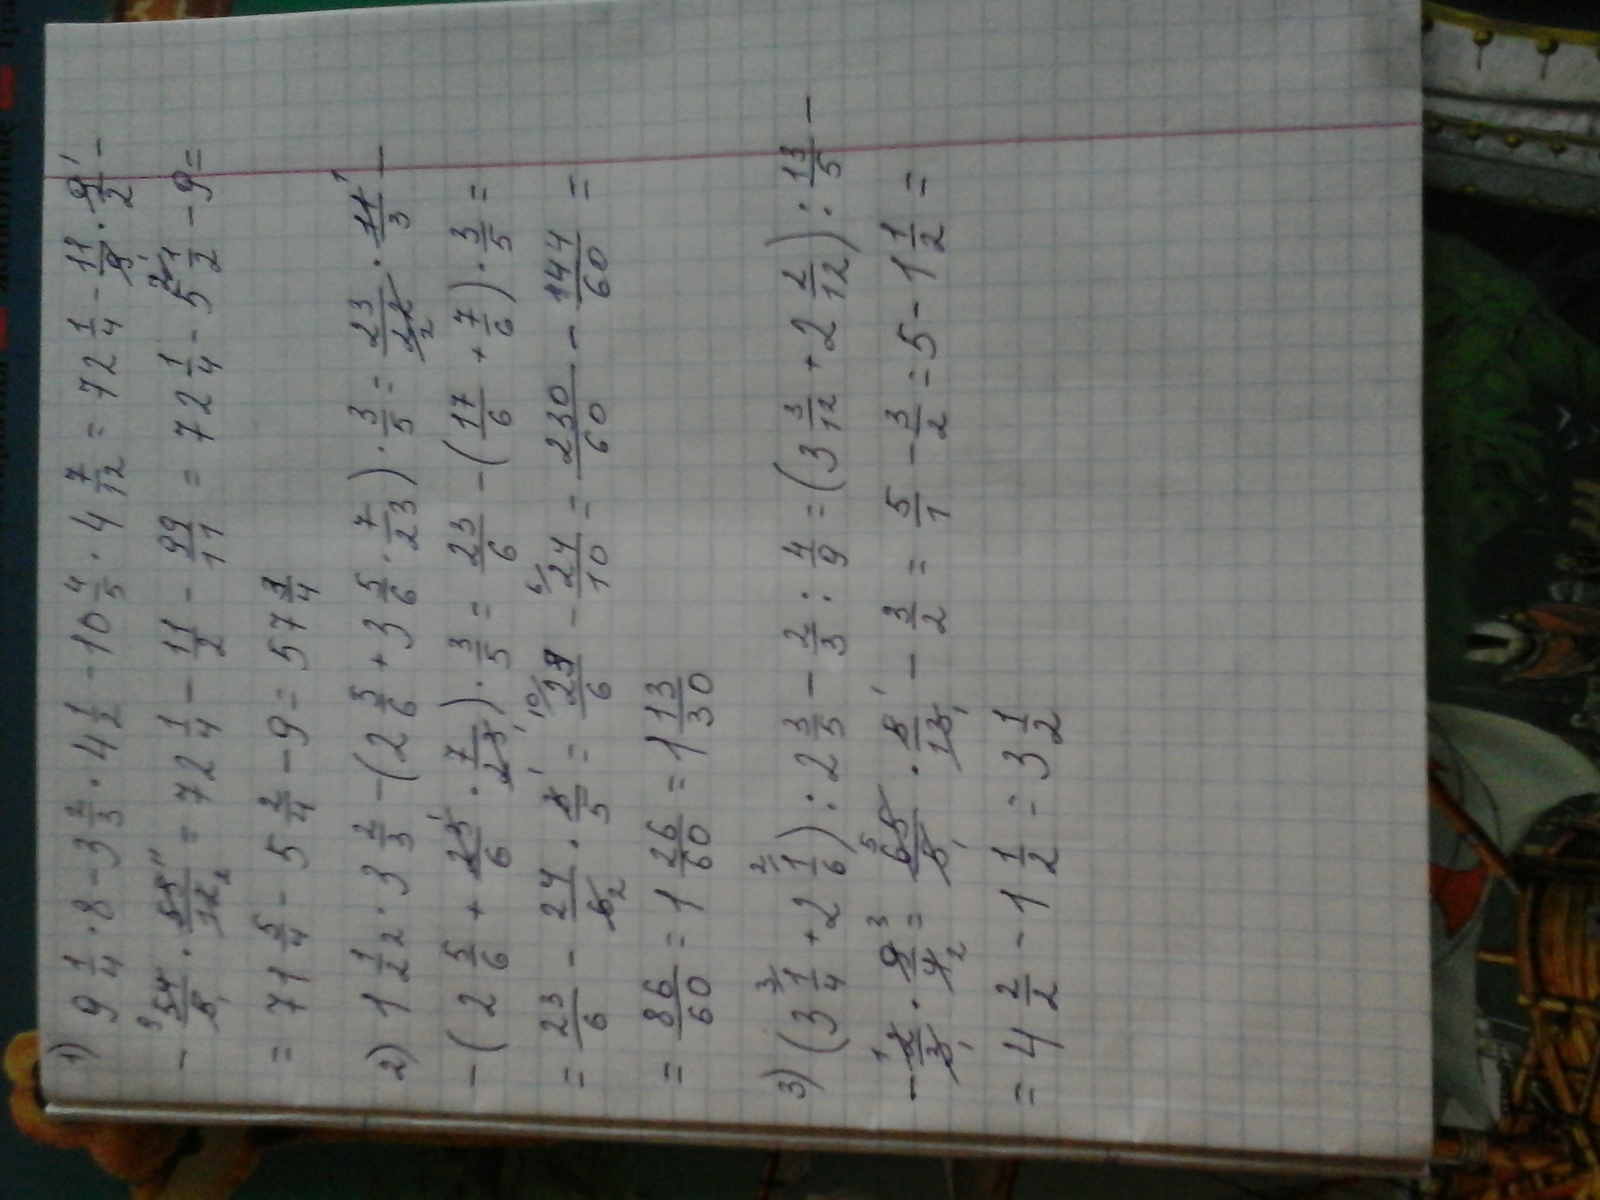 1) 9 1/4 · 8 - 3 2/3 · 4 1/2 - 10 4/5 · 4 7/12 = 72 1/4 - 11/9 · 9/2 -
- 54/5 · 55/12 = 72 1/4 - 11/2 - 99/11 = 72 1/4 - 5 1/2 - 9 =
= 71 5/4 - 5 2/4 - 9 = 57 3/4
2) 1 1/22 · 3 2/3 - (2 5/6 + 3 5/6 · 7/23) · 3/5 = 23/22 · 11/3 -
- (2 5/6 + 23/6 · 7/23) · 3/5 = 23/6 - (17/6 + 7/6) · 3/5 =
= 23/6 - 24/6 · 3/5 = 23/6 - 24/10 = 230/60 - 144/60 =
= 86/60 = 1 26/60 = 1 13/30
3) (3 1/4 + 2 1/6) : 2 3/5 - 2/3 : 4/9 = (3 3/12 + 2 2/12) : 13/5 -
- 2/3 · 9/4 = 65/5 · 5/13 - 3/2 = 5/1 - 3/2 = 5 - 1 1/2 =
= 4 2/2 - 1 1/2 = 3 1/2